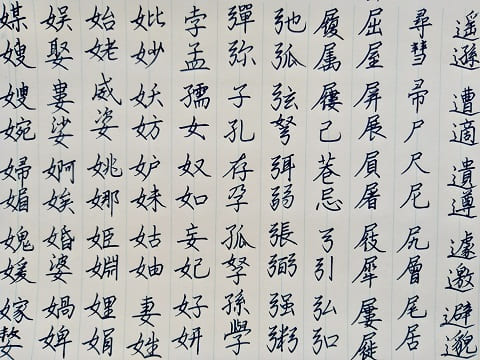 遙遜遭適遺遵遽邀避邈
尋彗帚尸尺尼尻層尾居
屈屋屏展屓屠屐犀屢屣
履属屨己巷忌弓引弘
弛弧弦弩弭弱張弼强粥
彈弥子孔存孕孤孥孫學
孛孟孺女奴如妄妃好妍
妣妙妖妨妒妹姑妯妻姓
始姥威姿姚娜姬婣娌娟
娯娶婁娑婀娭婚婆媧婢
媒嫂嫂婉婦媚媿媛嫁嫠